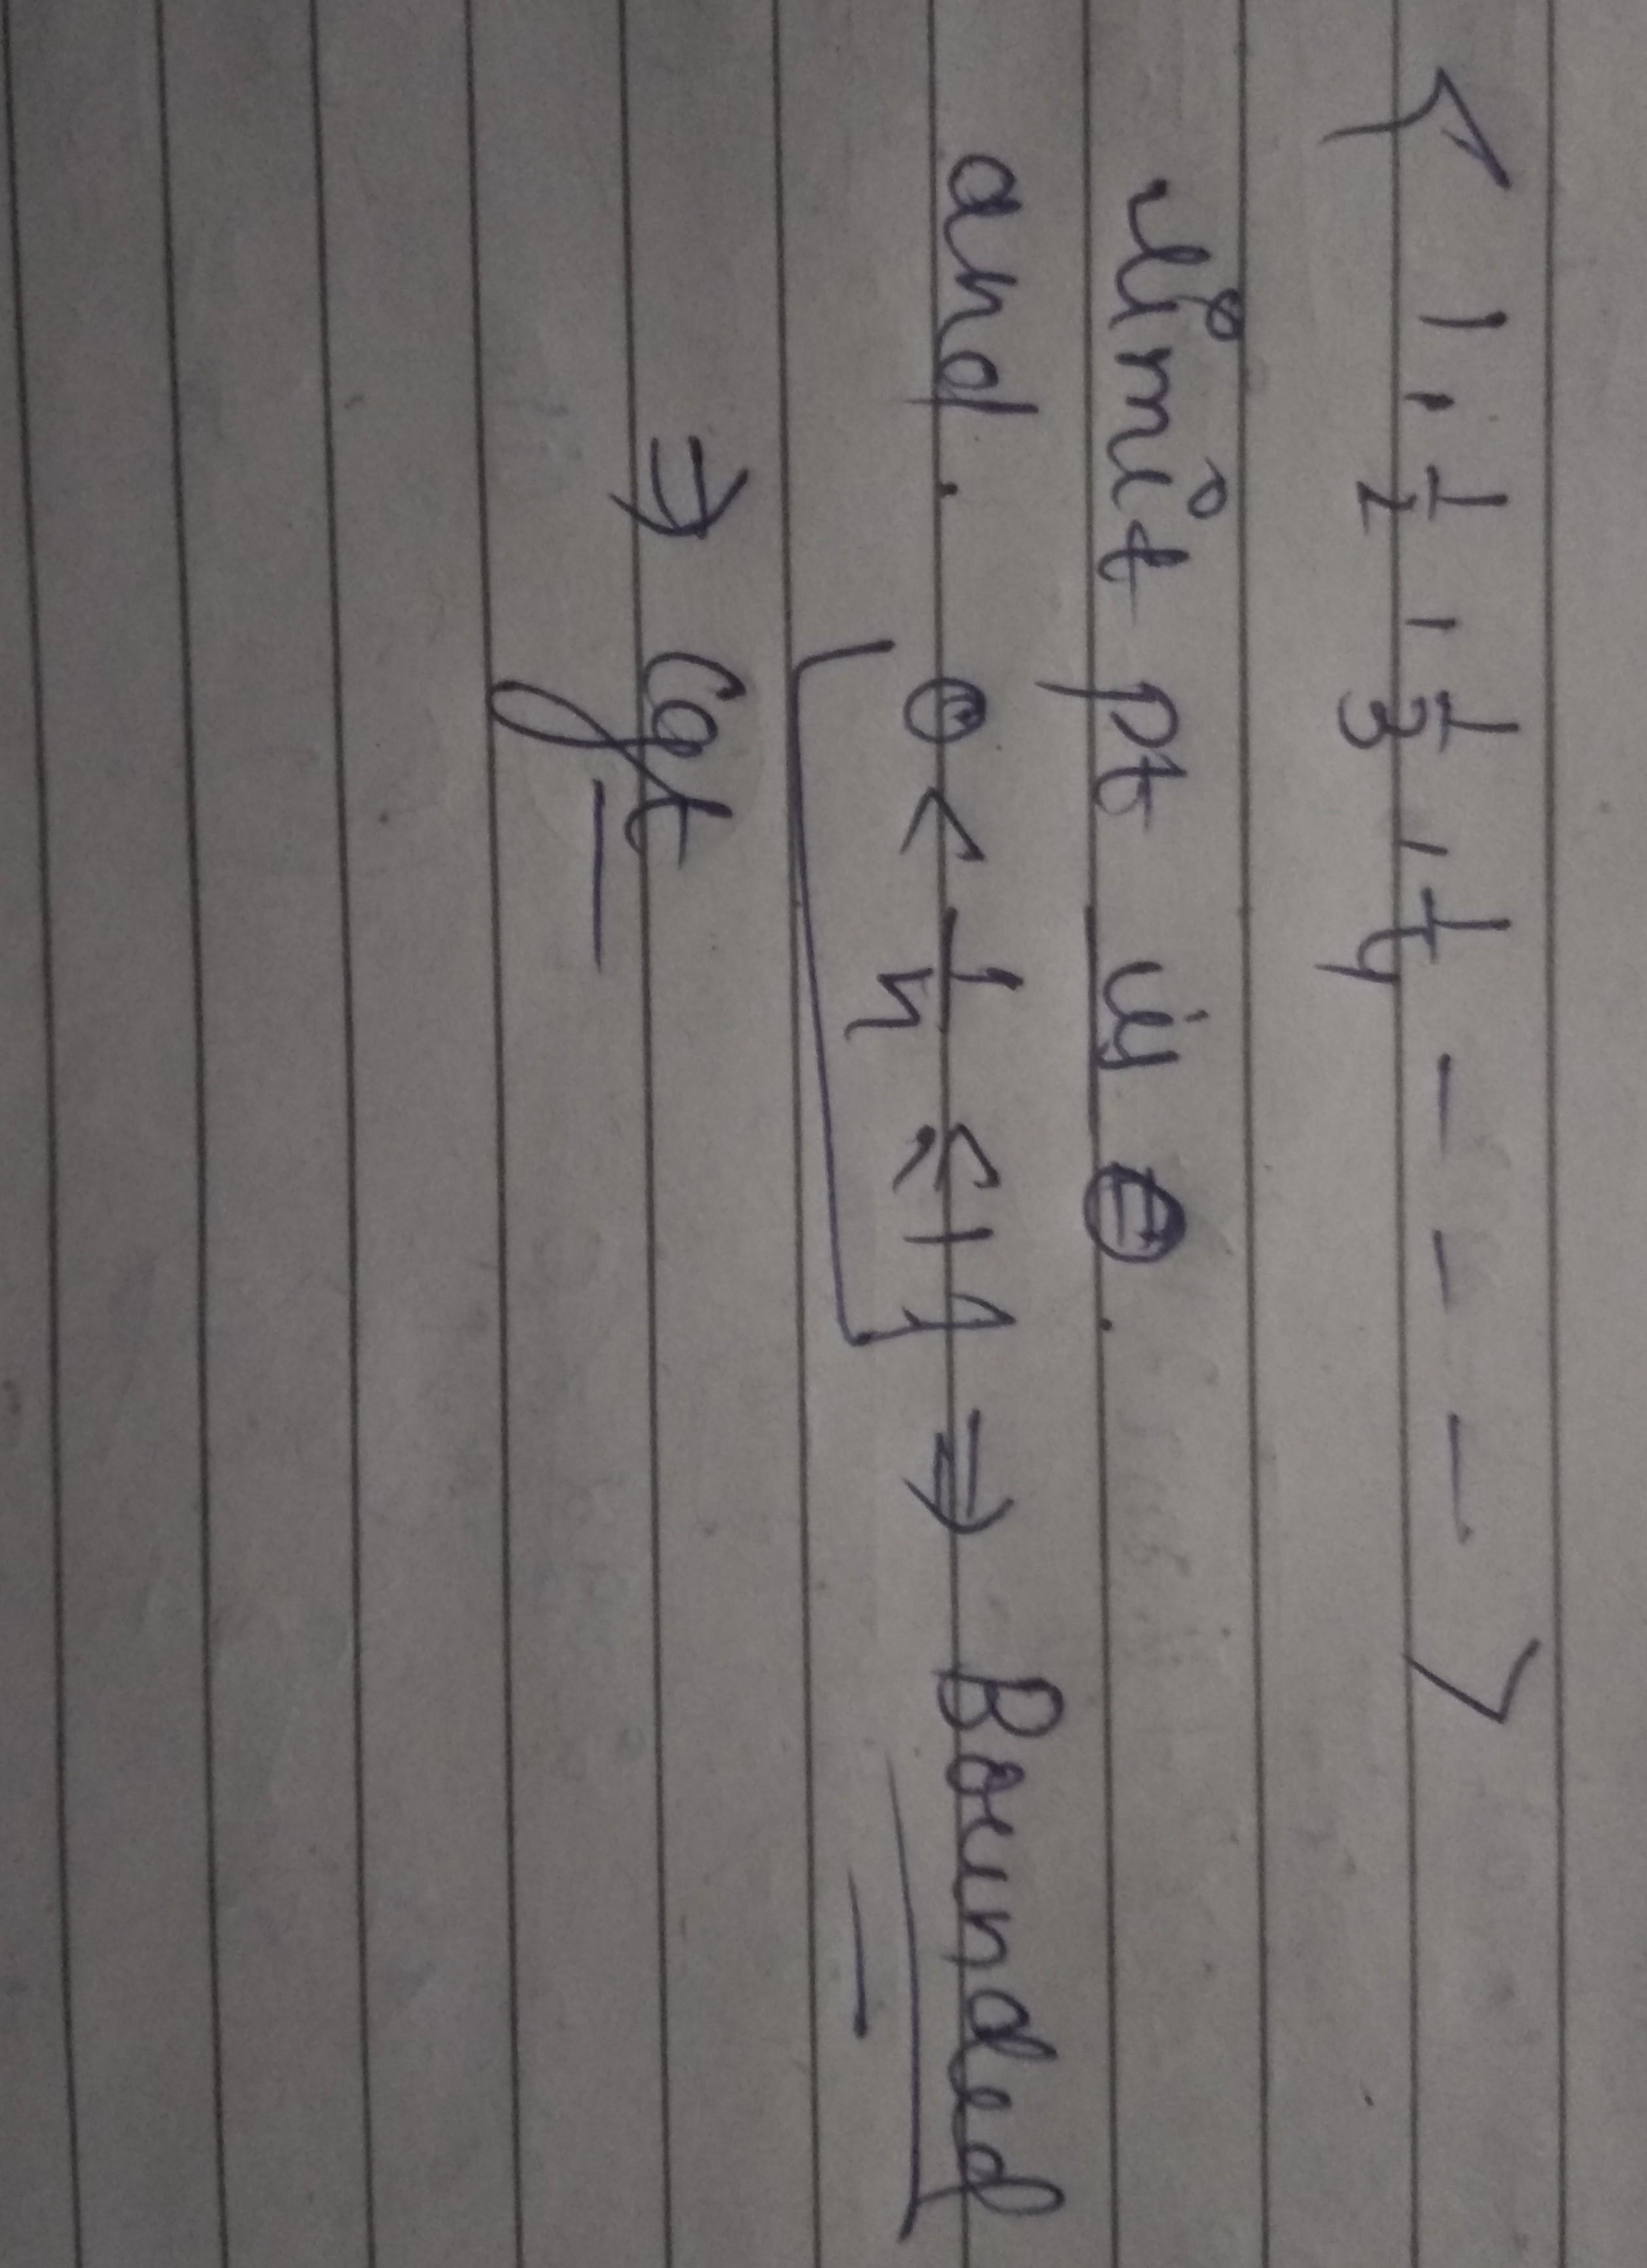 < 1, 1/2, 1/3, 1/4 - - - >
limit pt is 0.
and. 0 < 1/n ≤ 1 ⇒ Bounded
⇒ Cgt